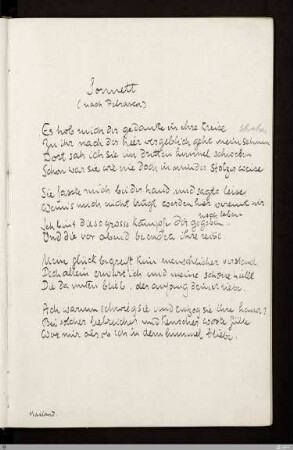 Sonnett
(nach Petrarca)
Es hob mich der gedanke in ihre kreise
Zu ihr nach der hier vergeblich geht mein sehnen
Dort sah ich sie im dritten himmel
Schön war sie wie nie doch in minder stolzer weise
Sie fasste mich bei der hand und sagte leise
Wenn mich nicht trügt werden hier vereint wir
noch leben
Ich bins die so grosse kämpfe dir gegeben
Und die vor abend beendet ihre reise
Mein glück begreift kein menschlicher verstand
Dich allein erwart ich und meine schöne hülle
Die da unten blieb · der anfang deiner liebe.
Ach warum schwieg sie und entzog sie ihre hand?
Bei solcher liebreichen und keuschen worte fülle
War mir als ob ich in dem himmel bliebe.
Mailand.